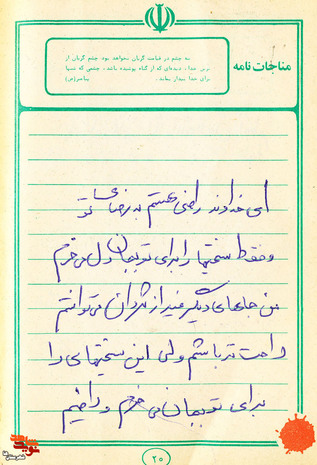 مناجات نامه
سه چشم در قیامت گریان نخواهد بود چشم گریان از
ترس خدا، دیده‌ای که از گناه پوشیده باشد، چشمی که شبها
برای خدا بیدار بماند.
پیامبر(ص)
ای خداوند راضی هستم به رضای تو
و فقط سختیها را برای تو بجان و دل می خرم
من جاهای دیگر غیر از گردان می توانستم
راحت تر باشم ولی این سختیهای را
برای تو بجان می خرم و راضیم
۲۵